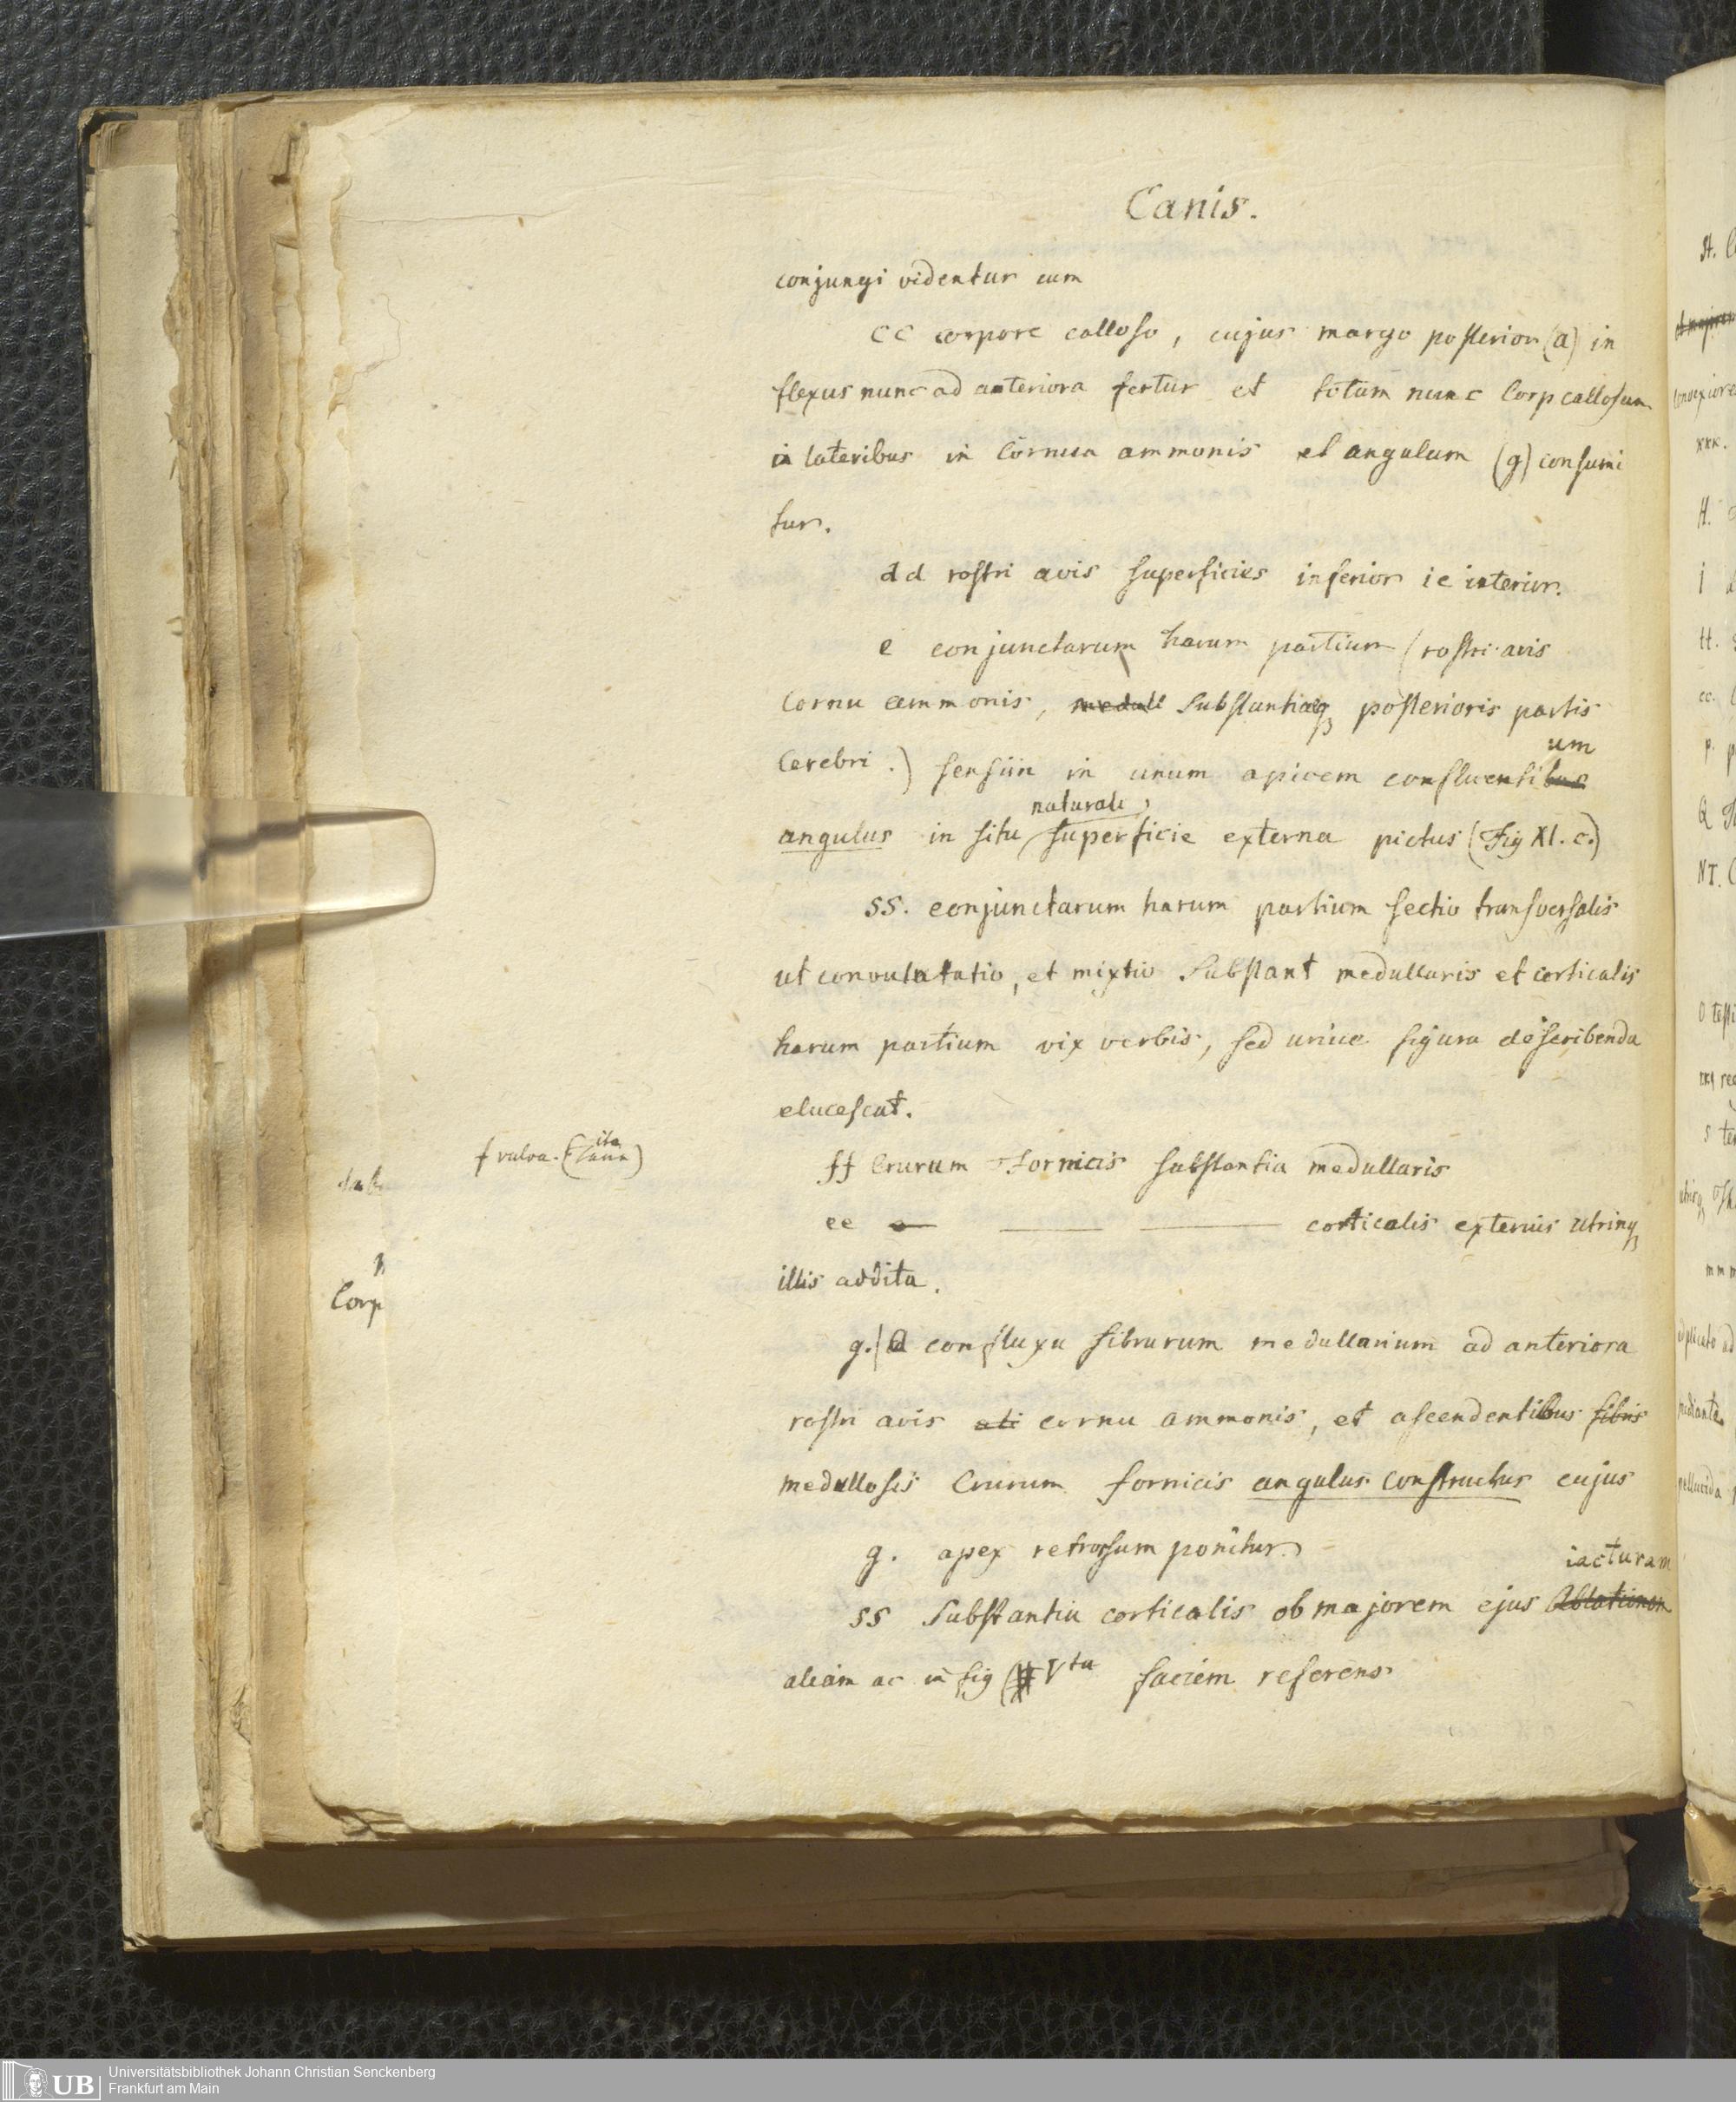 Canis.
conjungi videntur cum
cc corpore calloso, cujus margo posterior (a) in
flexus nunc ad anteriora fertur et totum nunc Corp callosum
in lateribus in Cornua ammonis et angulum (g) consumi
tur.
dd rostri avis superficies inferior ie interior.
e conjunctarum harum partium (rostri avis
Cornu ammonis, medull Substantiaeq posterioris partis
um
Cerebri.) sensim in unum apicem confluentibus
naturali,
angulus in situ superficie externa pictus (Fig XI. c.)
ss. conjunctarum harum partium sectio transversalis
ut convulutatio, et mixtio Substant medullaris et corticalis
harum partium vix verbis, sed unice figura describenda
elucescat.
f vulva.
ff Crurum Fornicis substantia medullaris
ee — — — corticalis exterius utrinq
illis addita.
Corp
g. a confluxu fibrarum medullarium ad anteriora
rostri avis cornu ammonis, et ascendentibus fibris
medullosis Crurum fornicis angulus constructus cujus
g. apex retrorsum ponitur.
iacturam
ss Substantia corticalis ob majorem ejus Ablationem
aliam ac in fig Vta faciem referens
Universitätsbibliothek Johann Christian Senckenberg
Frankfurt am Main
UB